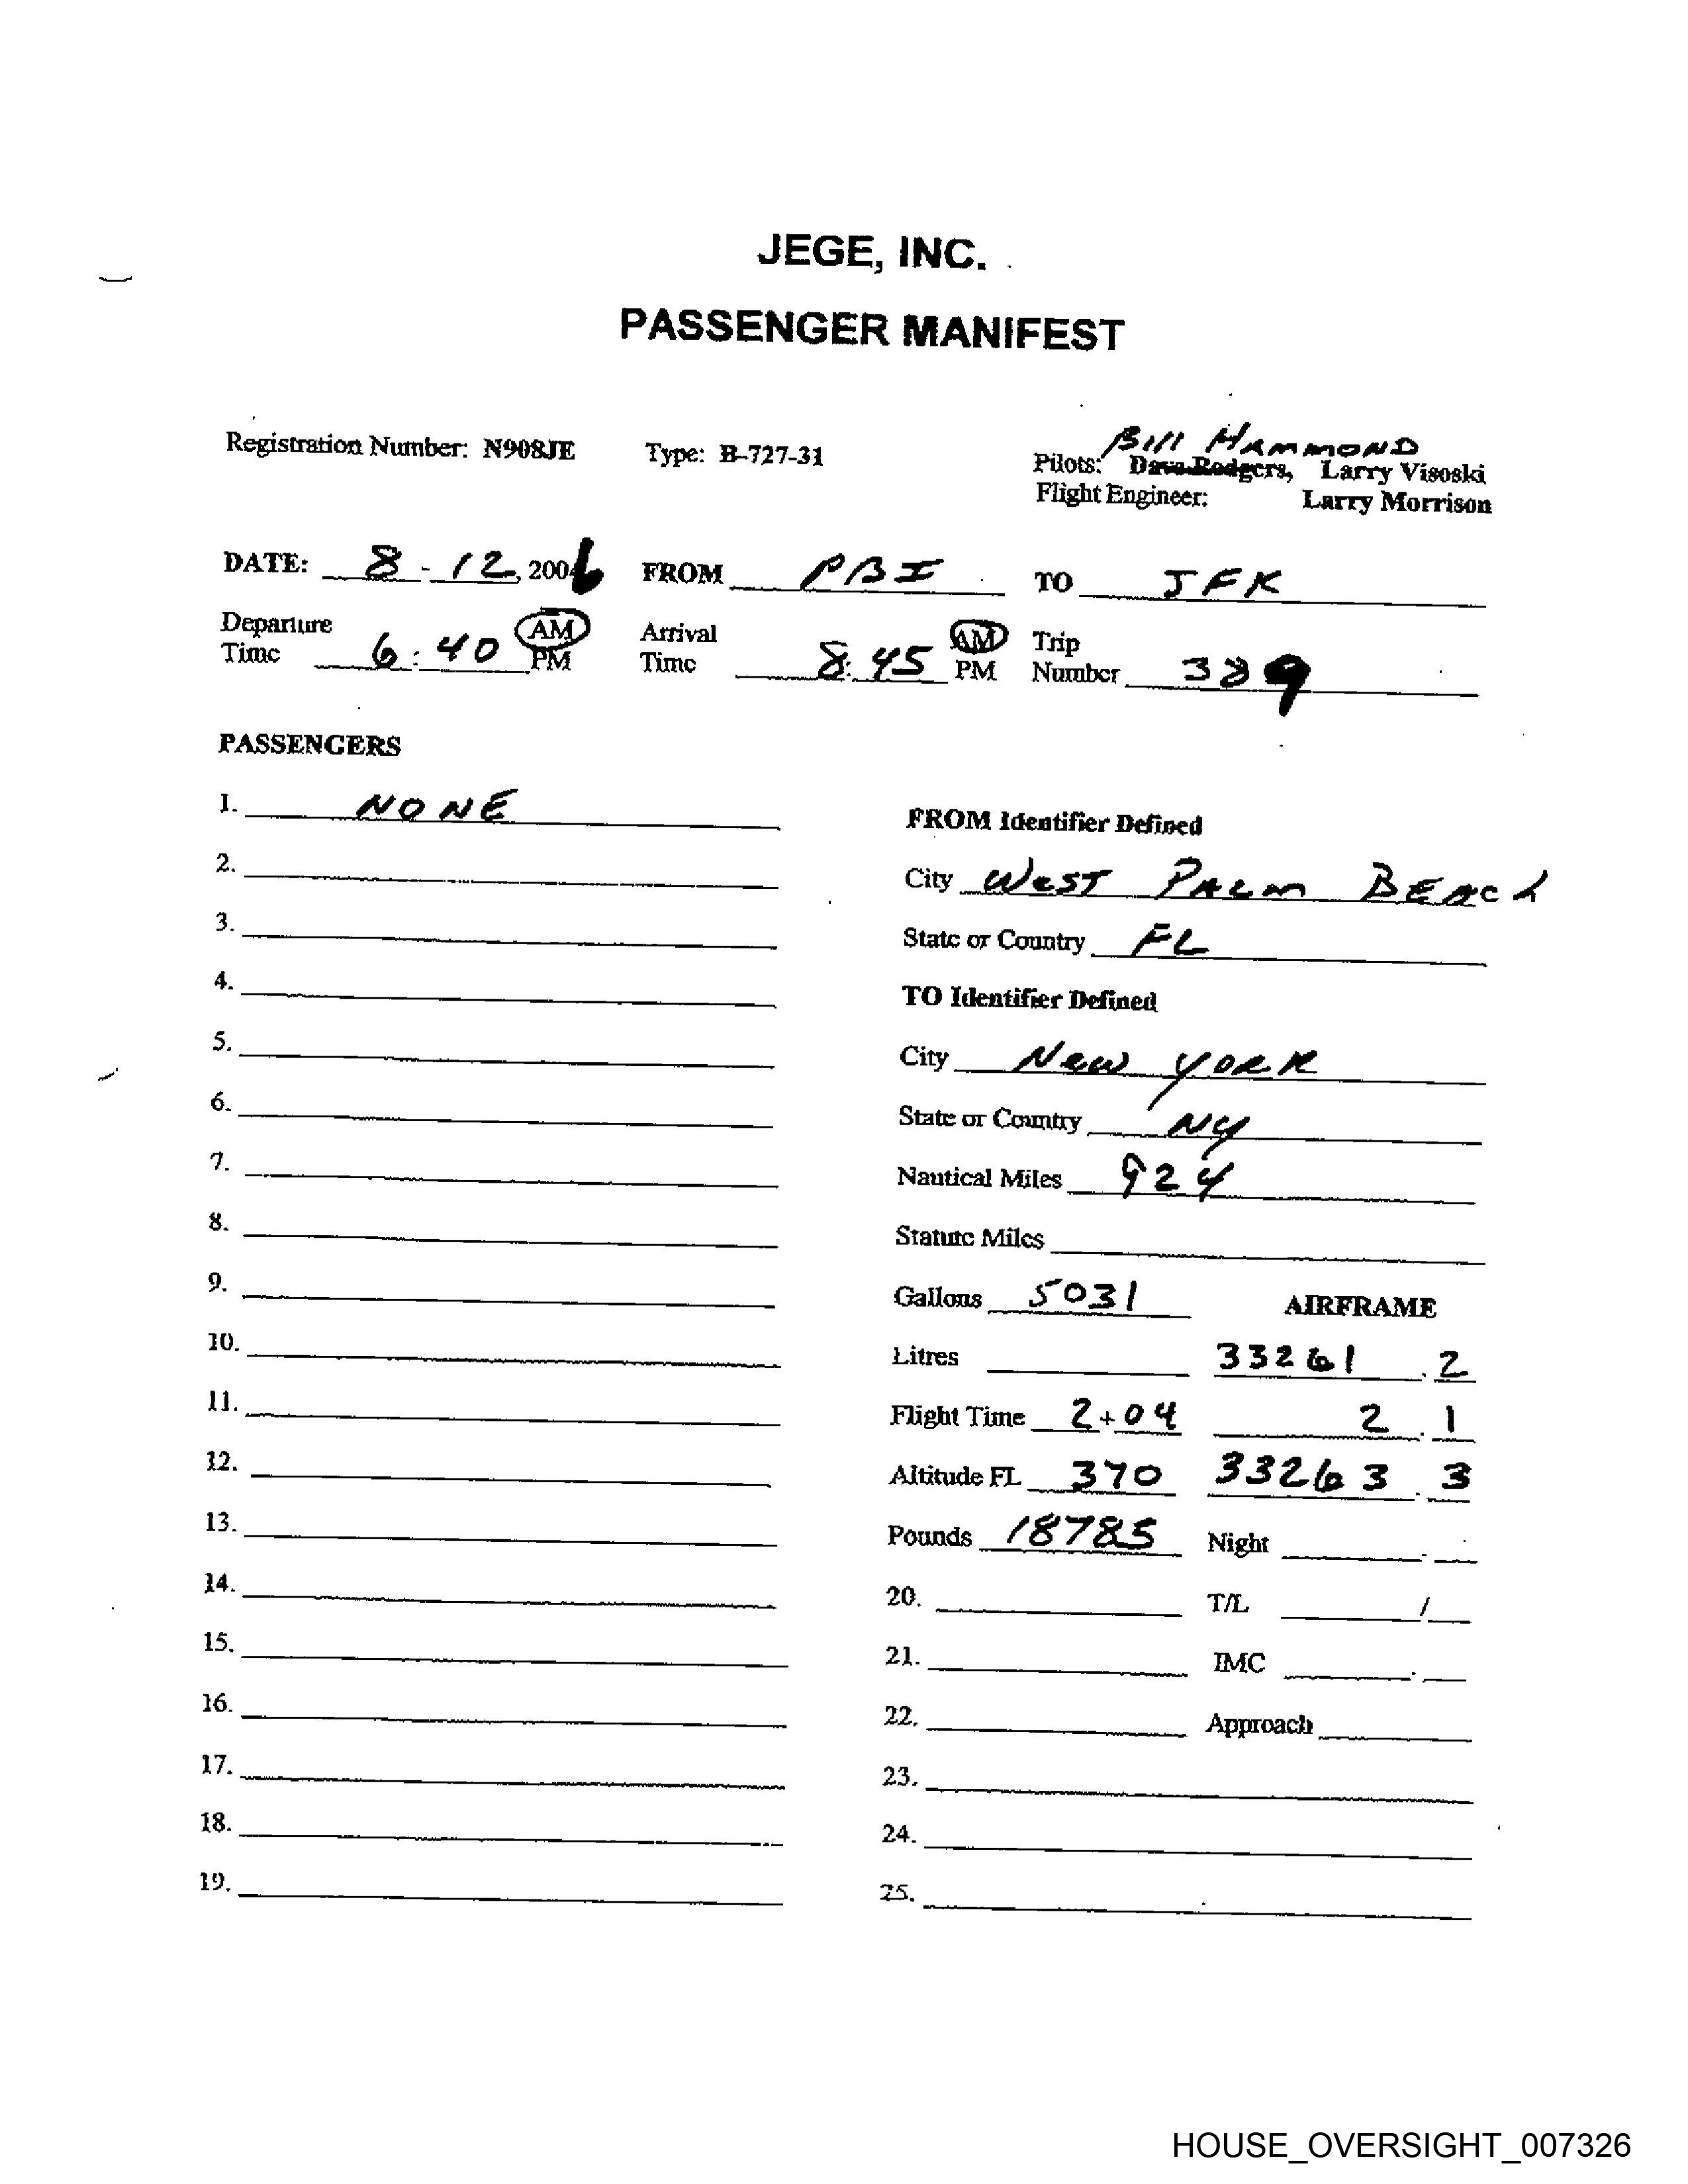 JEGE, INC.
PASSENGER MANIFEST
Registration Number: N908JE Type: B-727-31 Bill HAMMOND
Pilots: Dave Rodgers, Larry Visoski
Flight Engineer: Larry Morrison
DATE: 8 - 12, 2006 FROM PBI TO JFK
Departure Time 6:40 AM PM Arrival Time 8:45 AM PM Trip Number 389
PASSENGERS
1. NONE
2.
3.
4.
5.
6.
7.
8.
9.
10.
11.
12.
13.
14.
15.
16.
17.
18.
19.
FROM Identifier Defined
City WEST PALM BEACH
State or Country FL
TO Identifier Defined
City New YORK
State or Country NY
Nautical Miles 924
Statute Miles
Gallons 5031 AIRFRAME
Litres 33261 . 2
Flight Time 2+04 2 . 1
Altitude FL 370 33263 . 3
Pounds 18785 Night .
20. T/L /
21. IMC .
22. Approach
23.
24.
25.
HOUSE_OVERSIGHT_007326